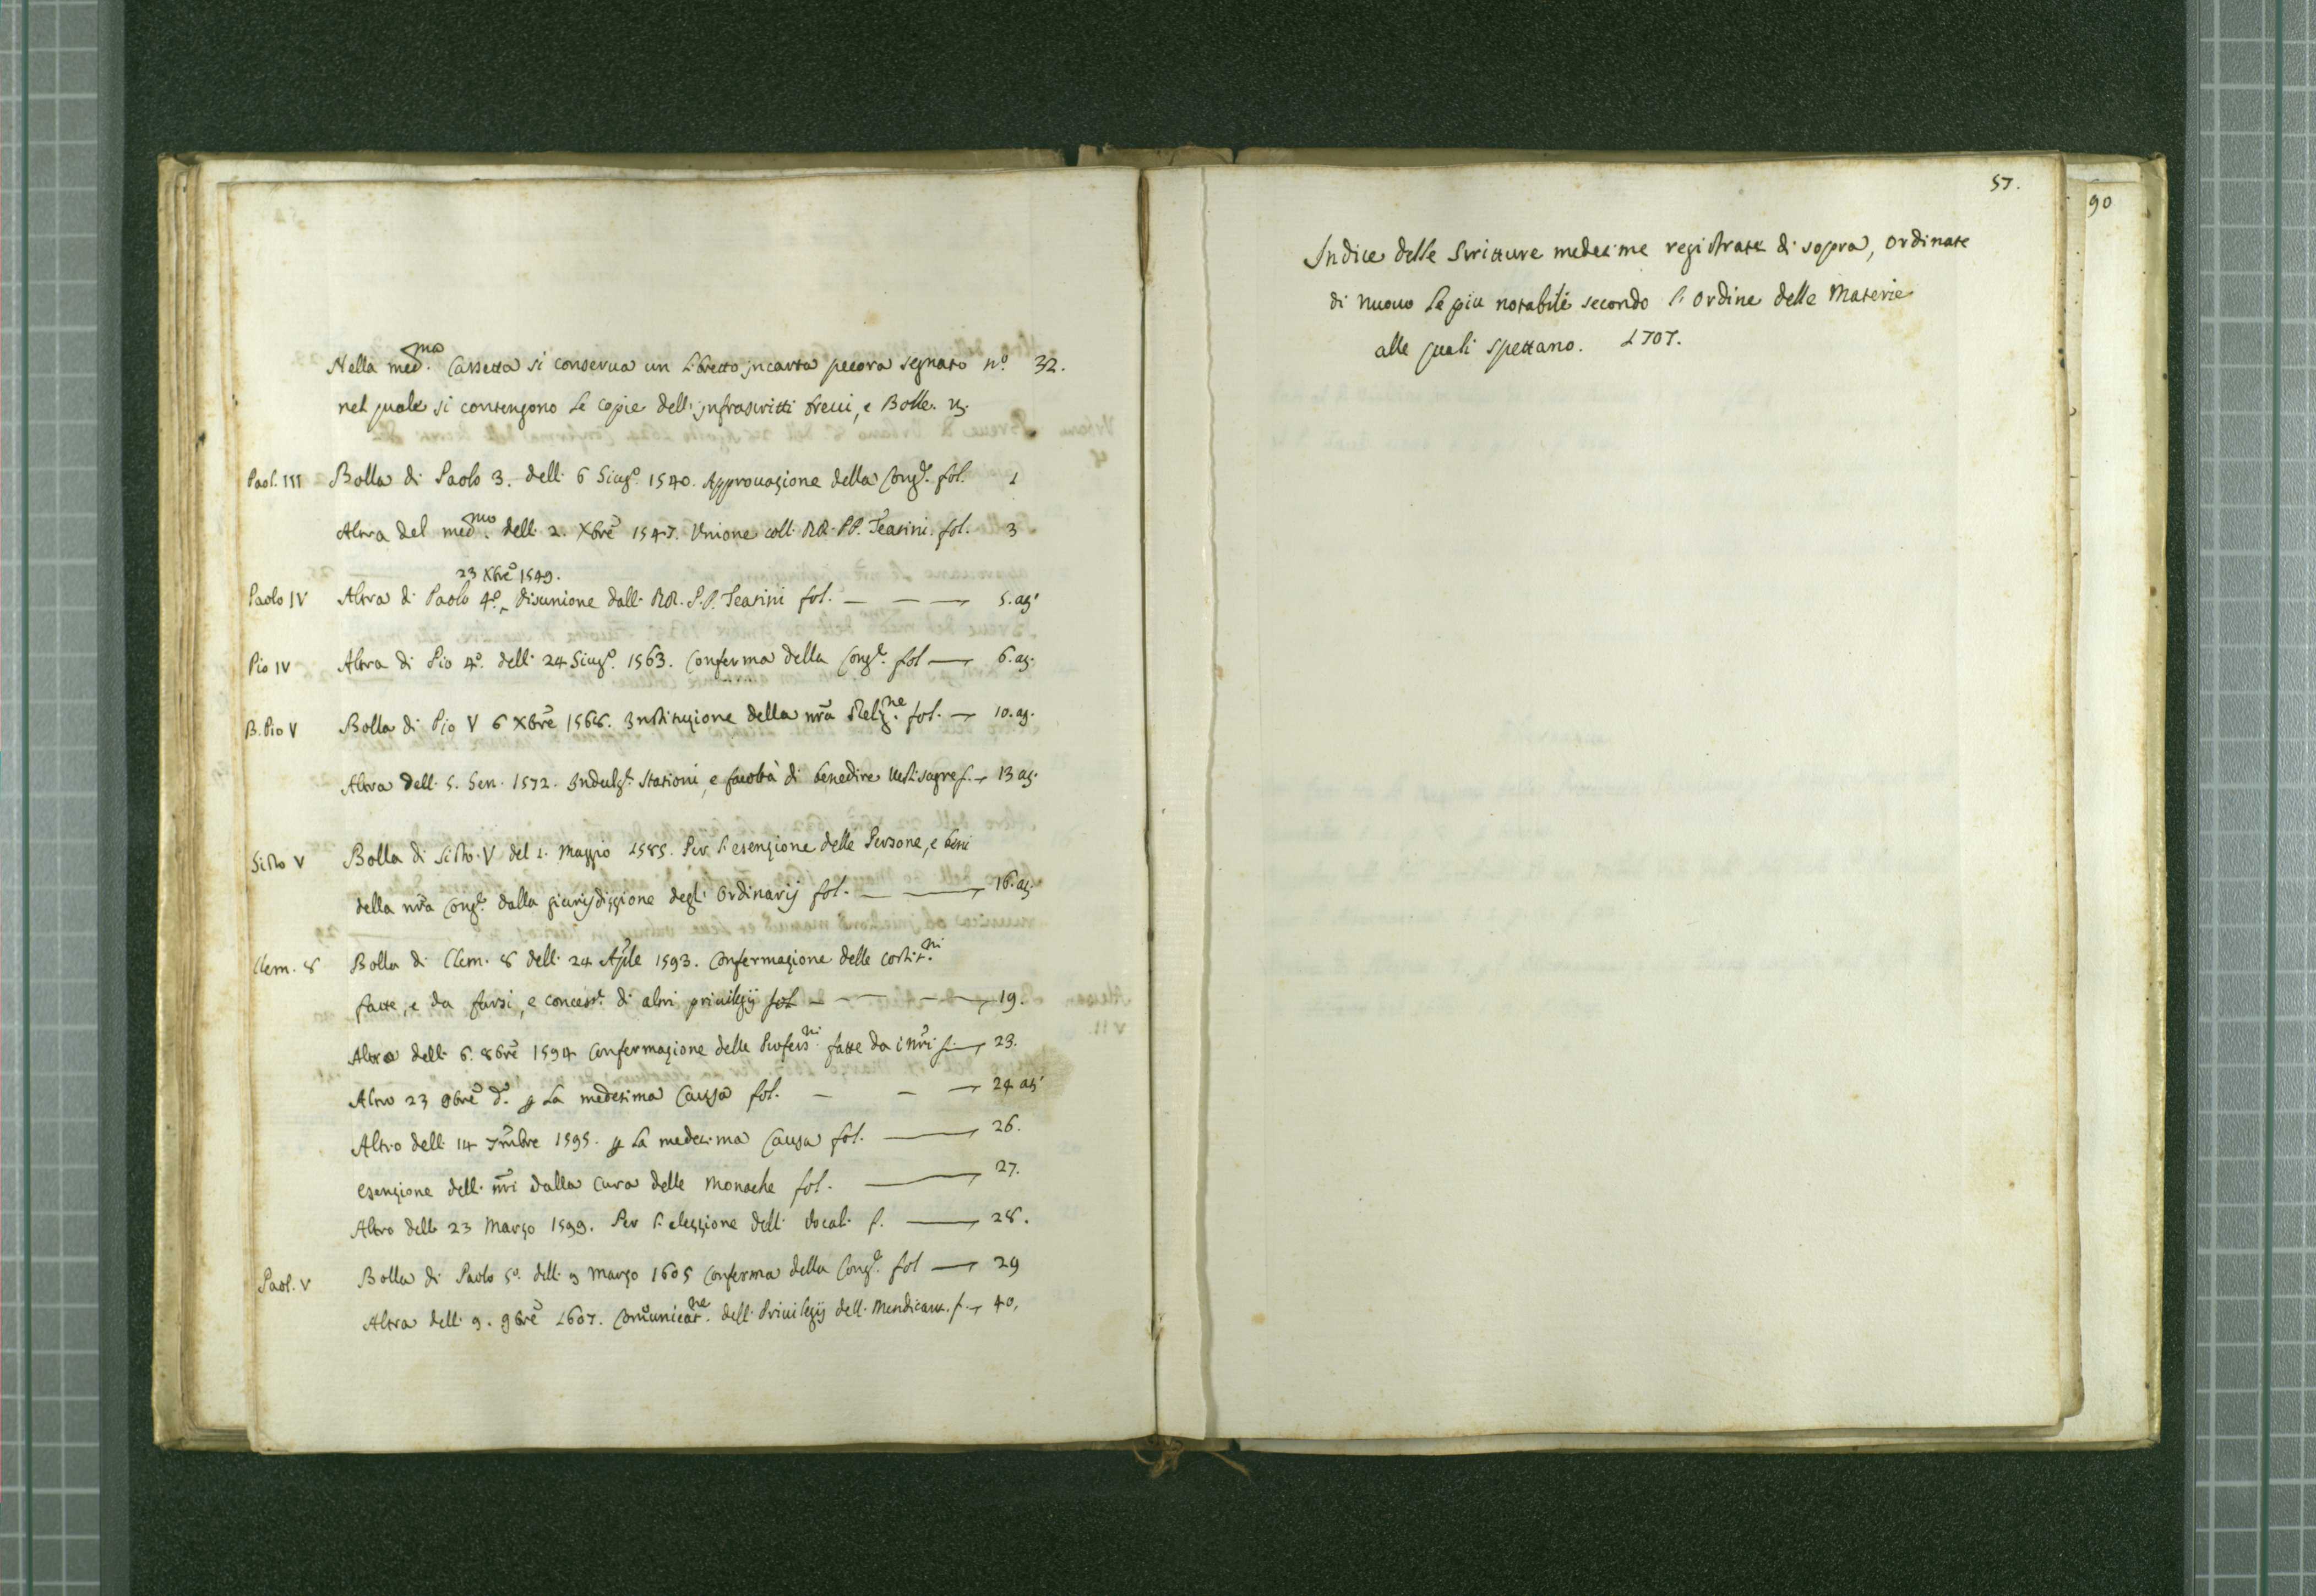 Nella med.mo Cassetta si conserva un Libretto in carta pecora segnato n.o 32.
nel quale si contengono le copie delli infrascritti brevi, e Bolle.
Paol. III Bolla di Paolo 3. delli 6 Giug.o 1540. Approvazione della Cong.e fol. 1
Altra del med.mo delli 2. Xbre 1547. Unione colli RR. PP. Teatini. fol. 3
23 Xbre 1549.
Paolo IV Altra di Paolo 4.o disunione dalli RR. P.P. Teatini fol. — — — 5. at.
Pio IV Altra di Pio 4.o delli 24 Giug.o 1563. Conferma della Cong.e fol — 6. at.
B. Pio V Bolla di Pio V 6 Xbre 1568. Instituzione della nra Relig.ne fol. — 10. at.
Altra delli 5. Gen. 1572. Indulg.e stationi, e facoltà di benedire vesti sagre f. — 13 at.
Sisto V Bolla di Sisto V del 1. Maggio 1585. Per l'esenzione delle Persone, e beni
della nra Cong.e dalla giurisdizzione degli Ordinarij fol. — — 16. at.
Clem. 8 Bolla di Clem. 8 delli 24 Aple 1593. Confermazione delle costit.ni
fatte, e da farsi, e concess.e di altri privilegij fol — — — — 19.
Altra delli 6. 8bre 1594 Confermazione delle Profess.ni fatte da i nri f. — 23.
Altro 23 9bre d.o p la medesima Causa fol. — — — 24 at.
Altro delli 14 7mbre 1595. p la medesima Causa fol. — 26.
Esenzione delli nri dalla Cura delle Monache fol. — 27.
Altro delli 23 Marzo 1599. Per l'elezzione delli Vocali f. — 28.
Paol. V Bolla di Paolo 5.o delli 9 Marzo 1605 Conferma della Cong.e fol — 29
Altra delli 9. 9bre 1607. Comunicat.ne delli Privilegij delli Mendicant. f. — 40.
57.
90
Indice delle Scritture medesime registrate di sopra, ordinate
di nuovo le più notabili secondo l'ordine delle Materie
alle quali spettano. 1707.